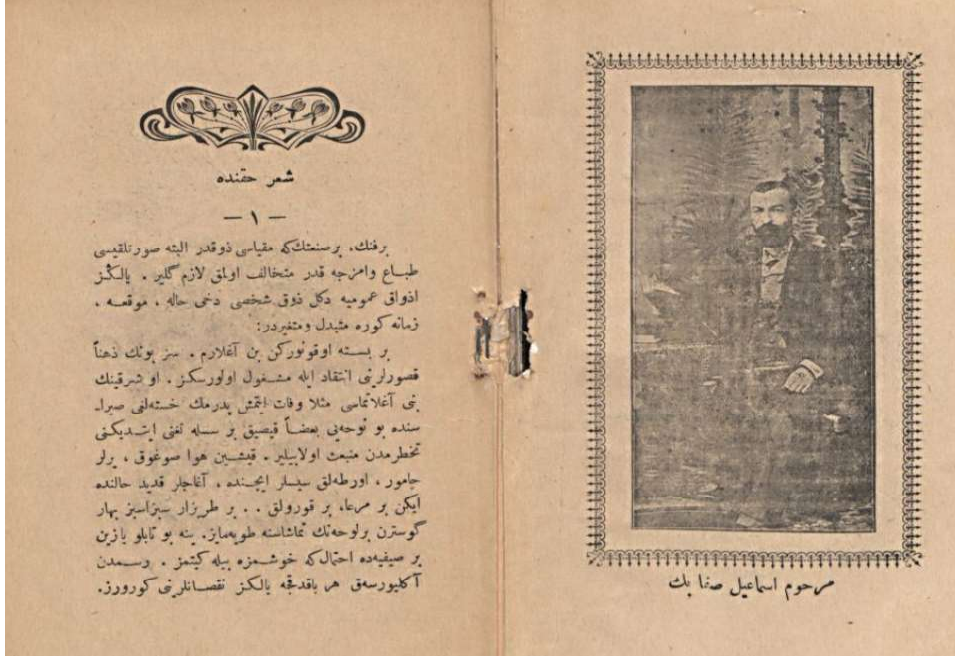 شعر حقنده
— ١ —
برفنك، برصنعتك كه مقياسى ذوقدر البته صورتلقيسى
طبـاع وامزجه قدر متخالف اولمق لازم گلير . يالكز
اذواق عموميه دكل ذوق شخصى دخى حاله ، موقعه ،
زمانه كوره متبدل ومتغيردر:
بر بسته اوقونوركن بن آغلارم . سز بونك ذهناً
قصورلرينى انتقاد ايله مشـغول اولورسكز . او شرقينك
بنى آغلاتماسى مثلا وفات ايتمش پدرمك خسته‌لغى صيرا-
سنده بو نوحه‌يى بعضـاً قيصيق بر سسله تغنى ايتـديكنى
تخطرمدن منبعث اولابيلير . قيشـين هوا صوغوق ، يرلر
چامور ، اورطه‌لق سيسلر ايچـنده ، آغاچلر قديد حالنده
ايكن بر مرعا، بر قورولق . . بر طرزار سبزاسبز بهار
گوسترن برلوحه‌نك تماشاسنه طويه‌مايز. ينه بو تابلو يازين
بر صيفيه‌ده احتمال كه خوشـمزه بيله كيتمز . رسـمدن
آكليورسه‌ق هر باقدقجه يالكز نقصـانلرينى كورورز.
مرحوم اسماعيل صفا بك